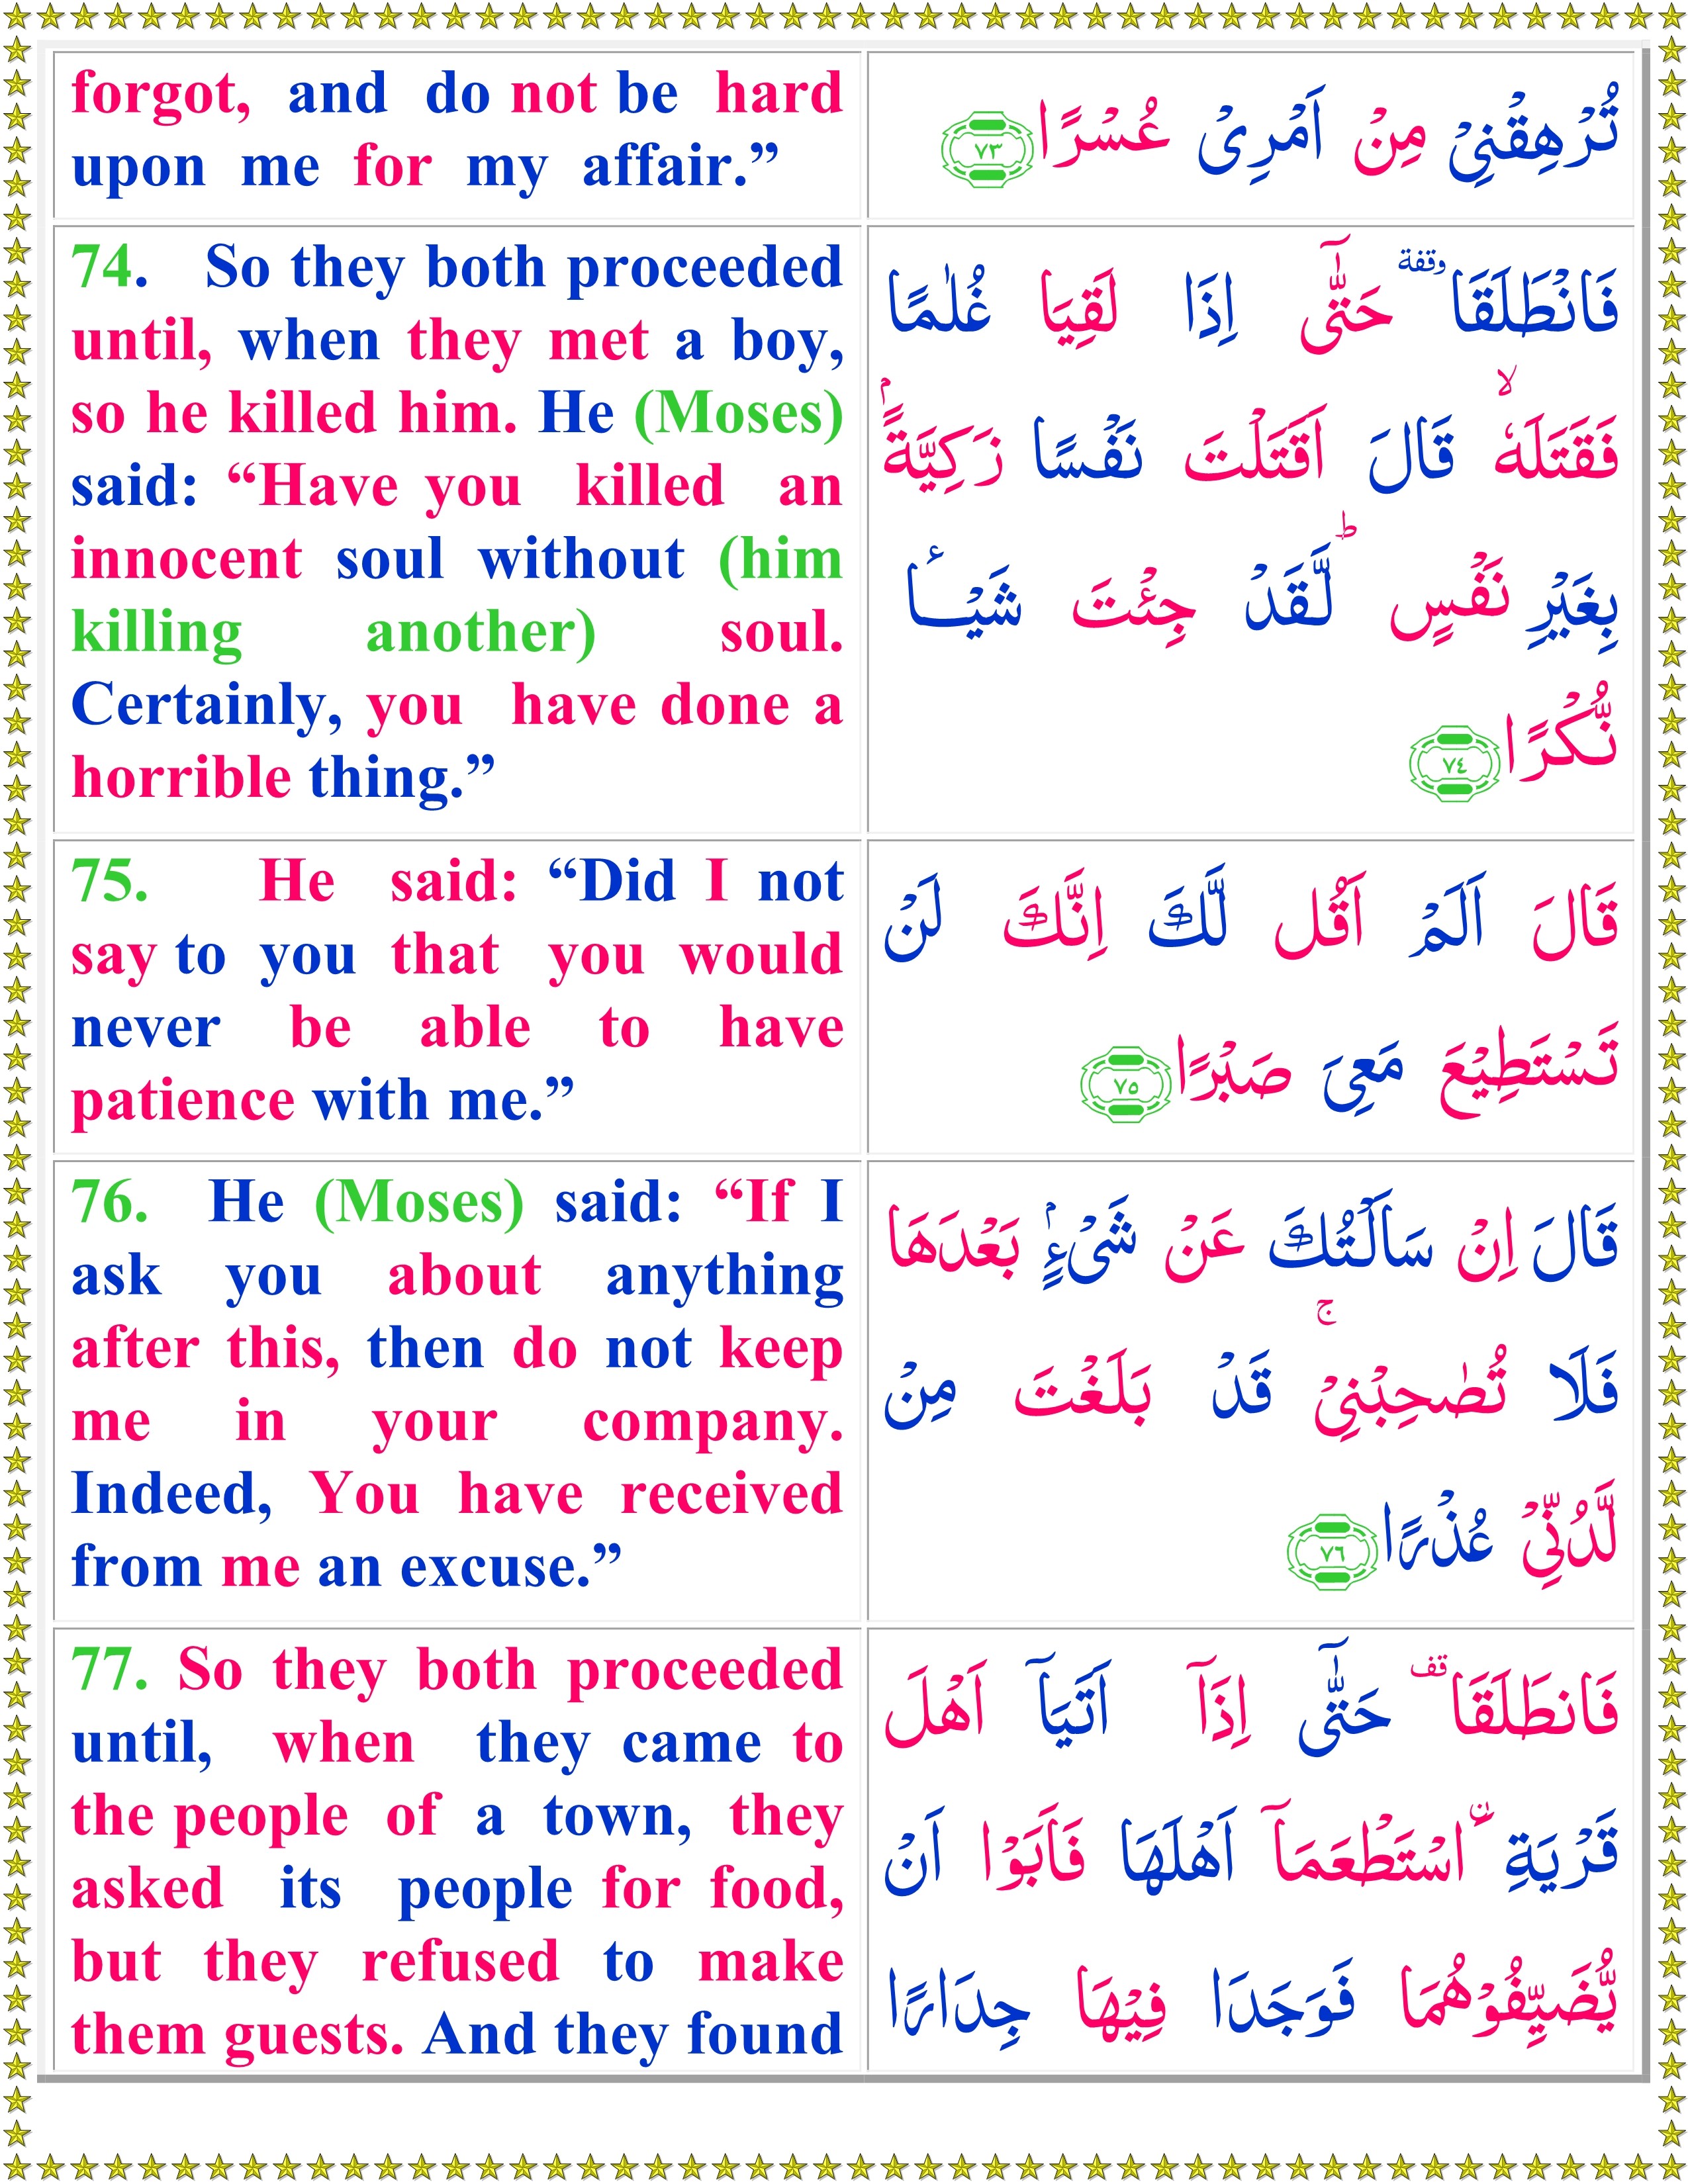 forgot, and do not be hard
upon me for my affair.”
تُرْهِقْنِىْ مِنْ اَمْرِىْ عُسْرًا ٧٣
74. So they both proceeded
until, when they met a boy,
so he killed him. He (Moses)
said: “Have you killed an
innocent soul without (him
killing another) soul.
Certainly, you have done a
horrible thing.”
فَانْطَلَقَا وقفة حَتّٰٓى اِذَا لَقِيَا غُلٰمًا
فَقَتَلَهٗ ۙ قَالَ اَقَتَلْتَ نَفْسًا زَكِيَّةًۢ
بِغَيْرِ نَفْسٍ ؕ لَّقَدْ جِئْتَ شَيْــٴًـا
نُّكْرًا ٧٤
75. He said: “Did I not
say to you that you would
never be able to have
patience with me.”
قَالَ اَلَمْ اَقُل لَّكَ اِنَّكَ لَنْ
تَسْتَطِيْعَ مَعِىَ صَبْرًا ٧٥
76. He (Moses) said: “If I
ask you about anything
after this, then do not keep
me in your company.
Indeed, You have received
from me an excuse.”
قَالَ اِنْ سَاَلْتُكَ عَنْ شَىْءٍۢ بَعْدَهَا
فَلَا تُصٰحِبْنِىْ ۚ قَدْ بَلَغْتَ مِنْ
لَّدُنِّىْ عُذْرًا ٧٦
77. So they both proceeded
until, when they came to
the people of a town, they
asked its people for food,
but they refused to make
them guests. And they found
فَانطَلَقَا قف حَتّٰٓى اِذَاۤ اَتَيَاۤ اَهْلَ
قَرْيَةِ ۨاسْتَطْعَمَاۤ اَهْلَهَا فَاَبَوْا اَنْ
يُّضَيِّفُوْهُمَا فَوَجَدَا فِيْهَا جِدَارًا